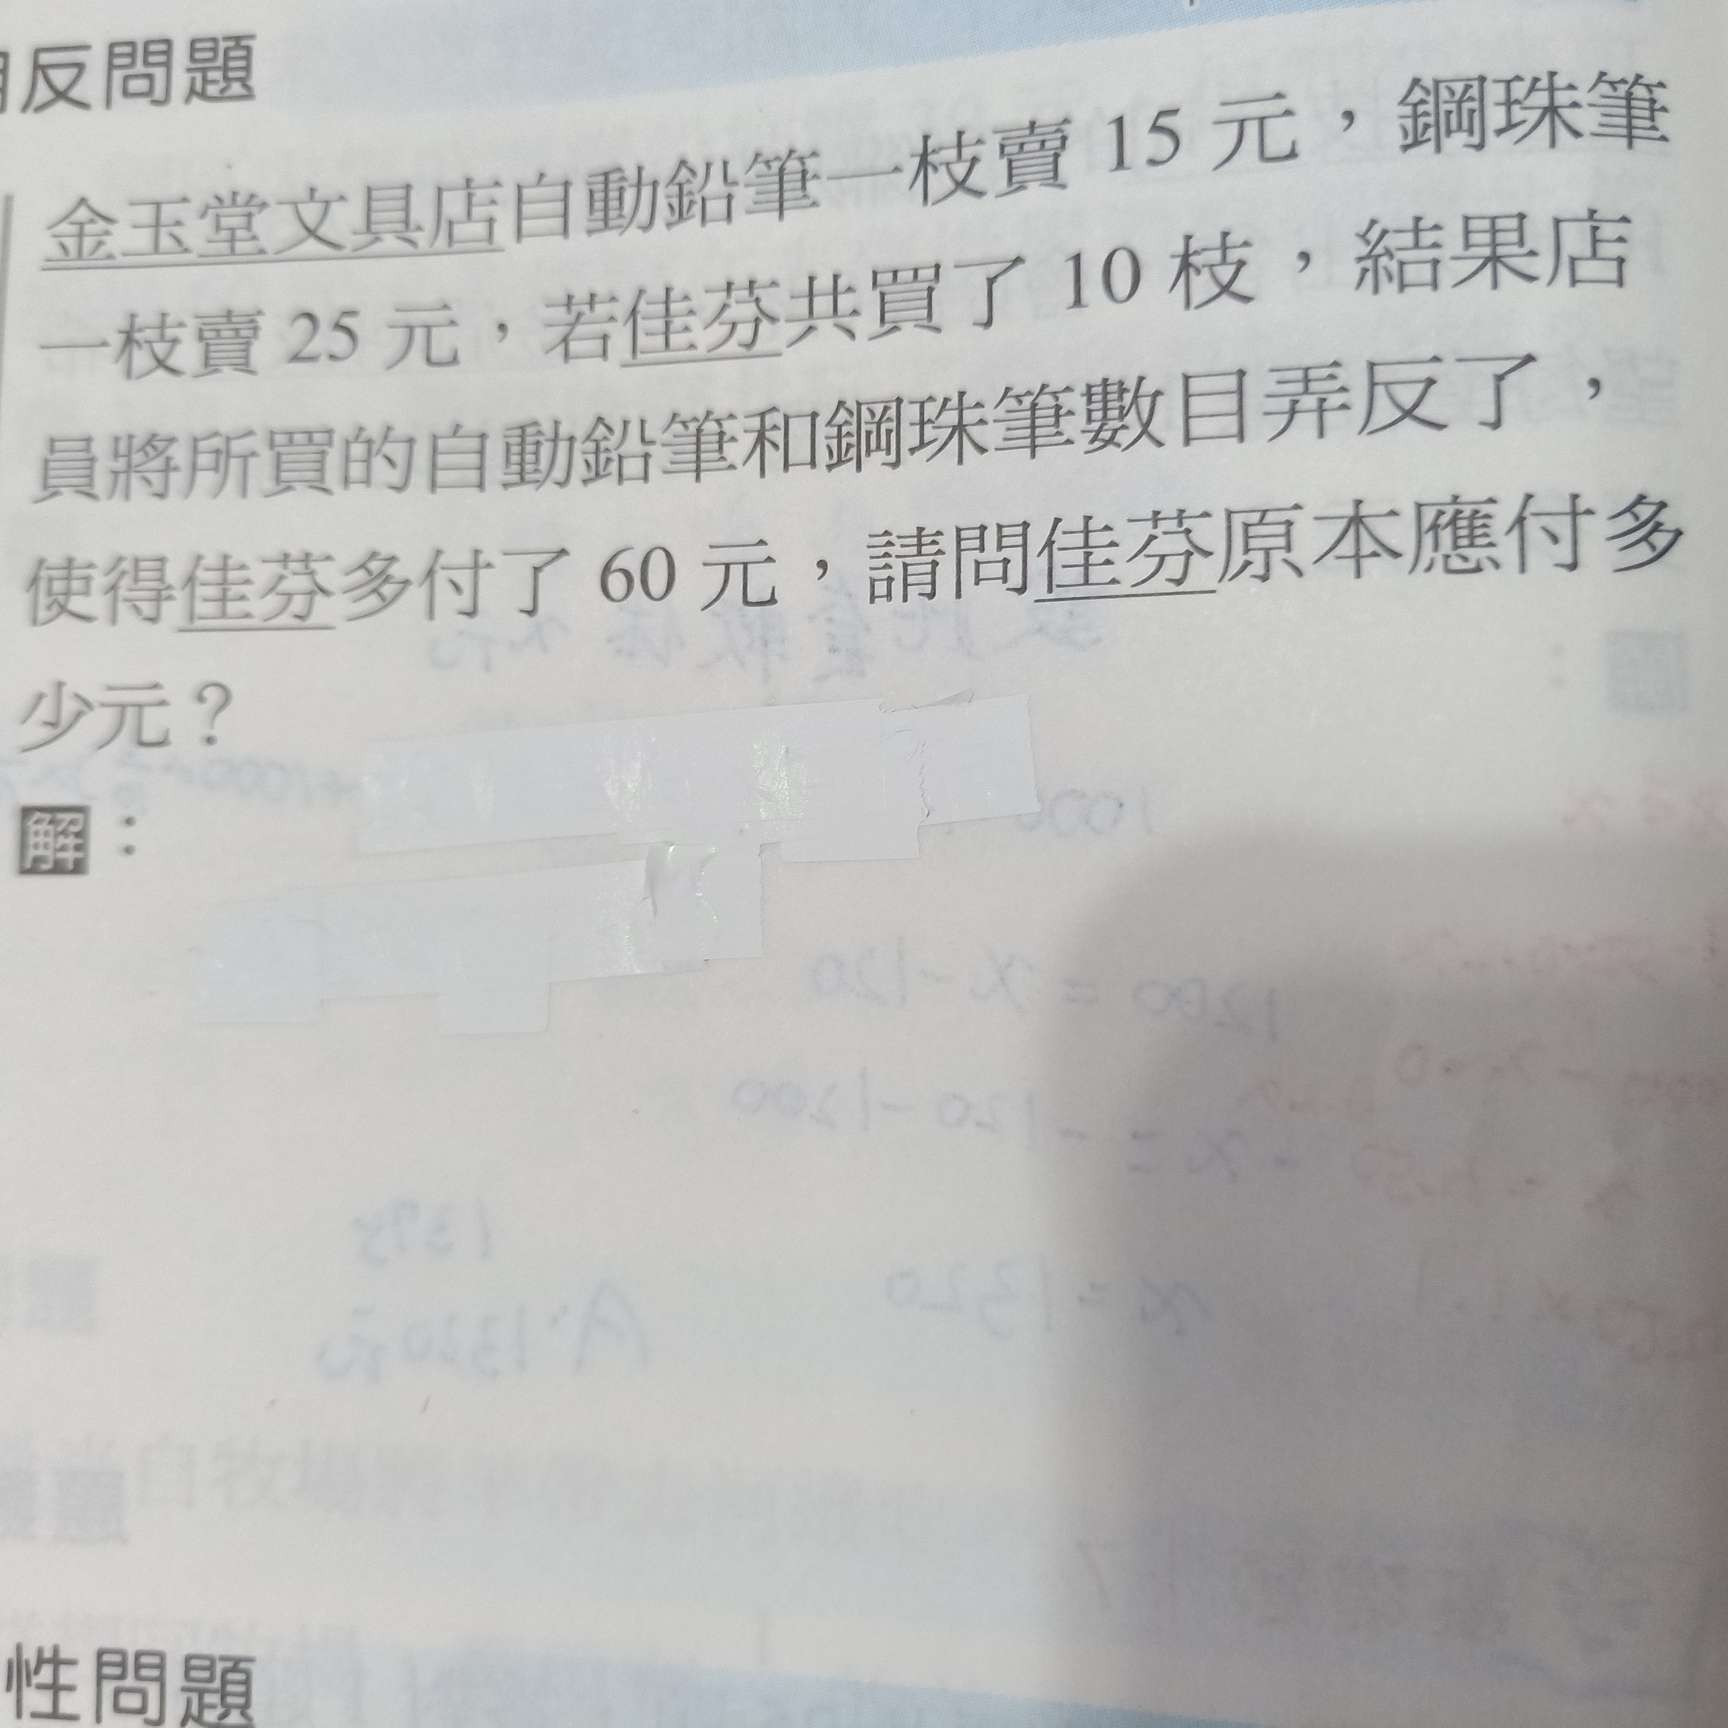 反問題
金玉堂文具店自動鉛筆一枝賣 15 元，鋼珠筆
一枝賣 25 元，若佳芬共買了 10 枝，結果店
員將所買的自動鉛筆和鋼珠筆數目弄反了，
使得佳芬多付了 60 元，請問佳芬原本應付多
少元？
解：
性問題